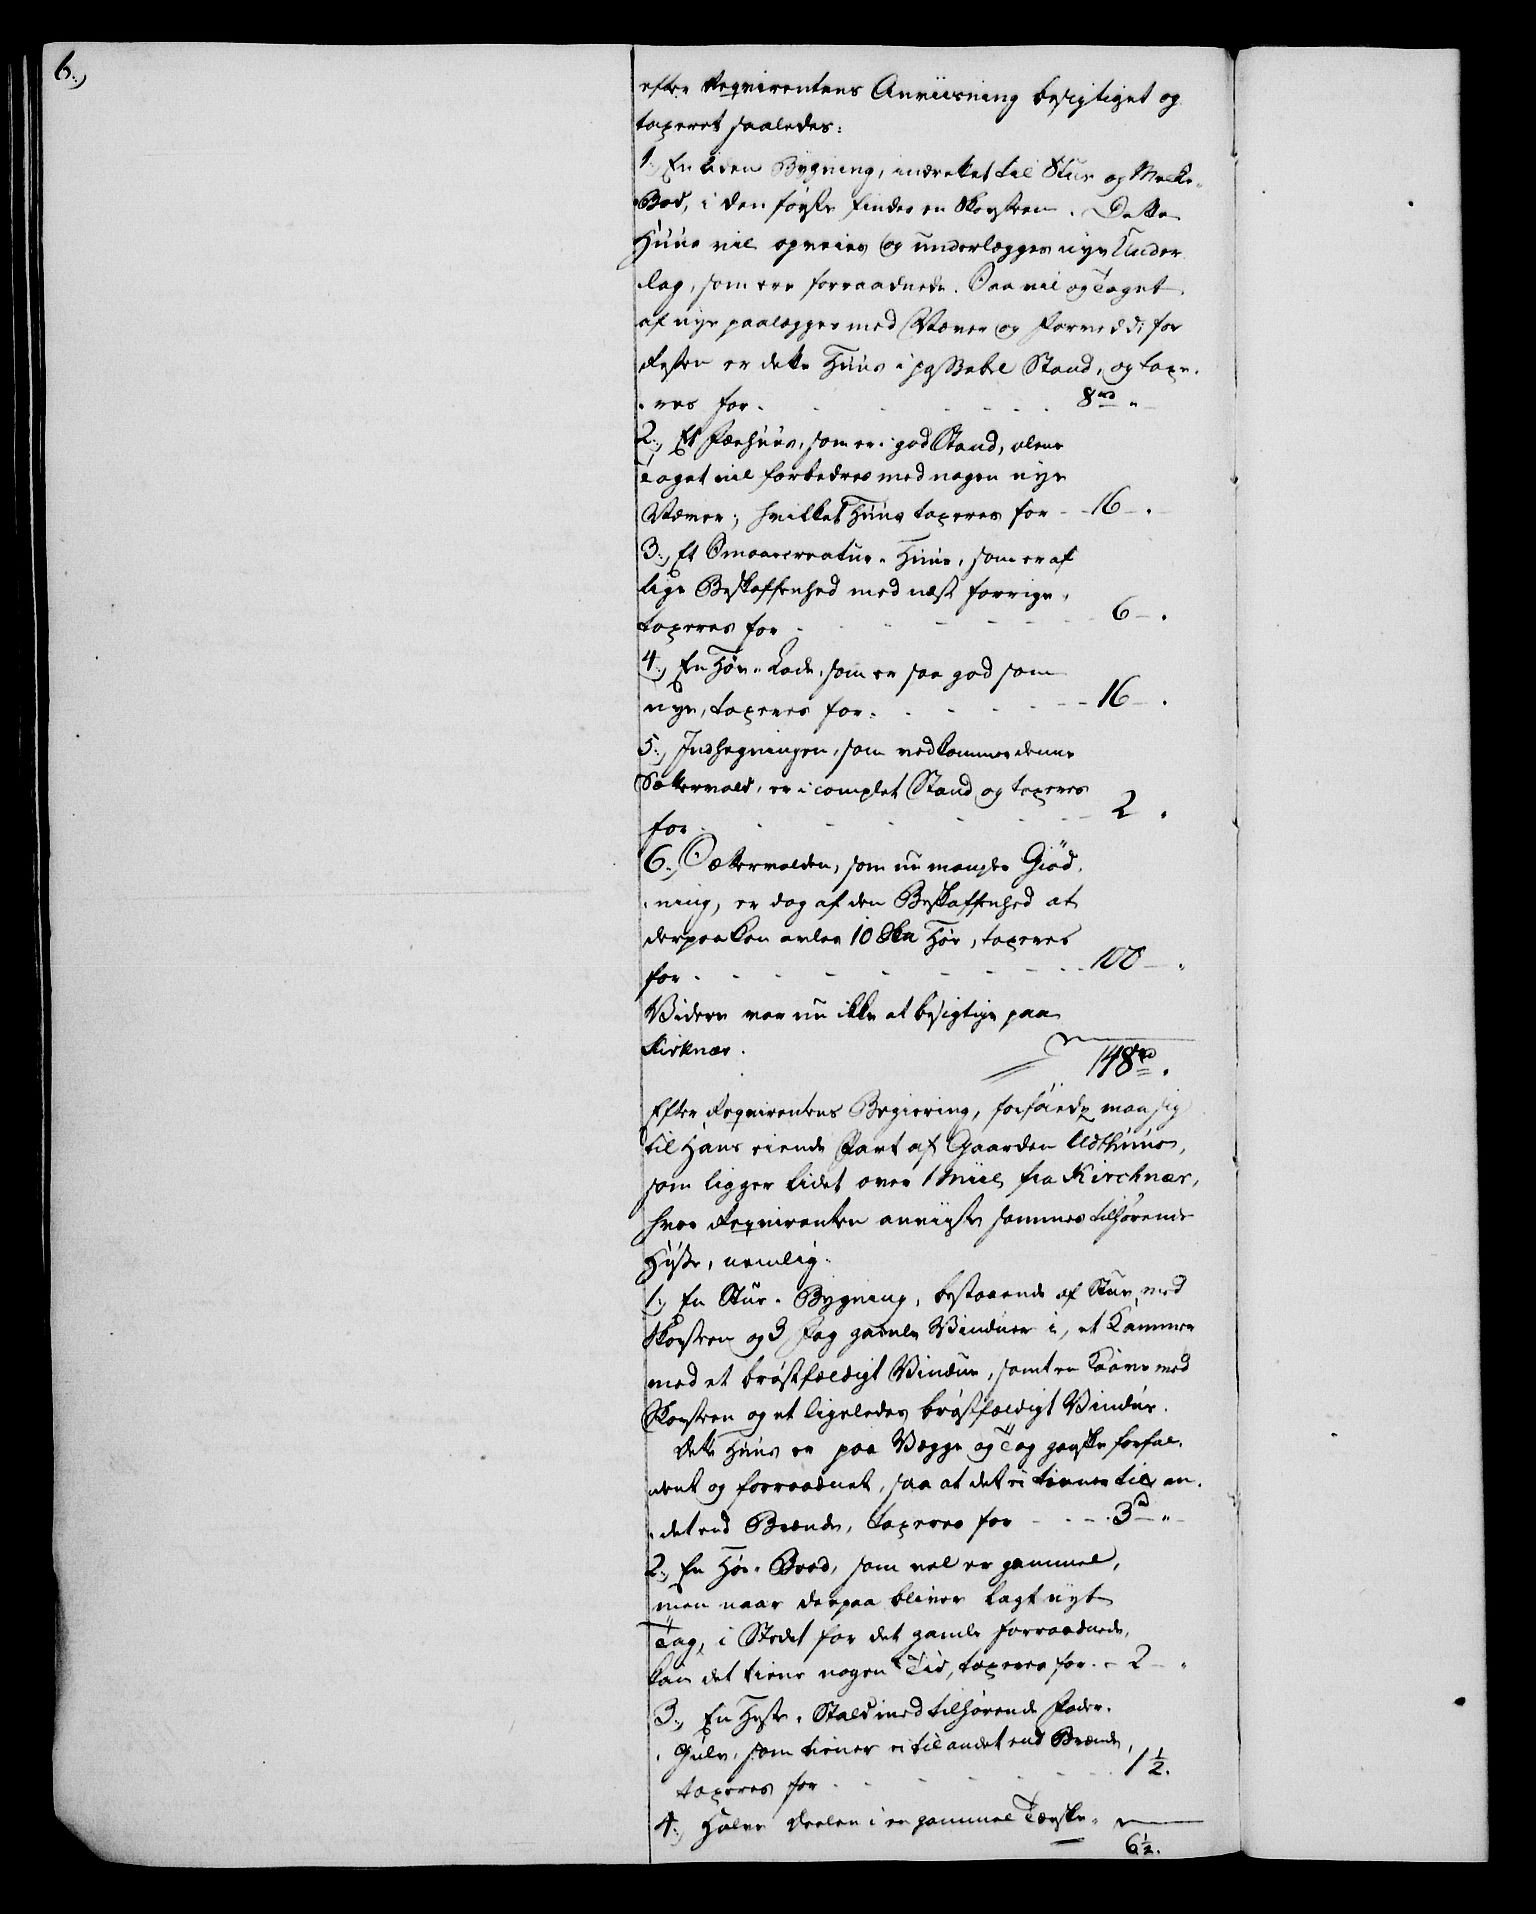 6.)
efter Reqvirentens Anviisning besigtiget og
taxeret saaledes:
1.) En liden Bygning, indrettet til Stue og Melke-
Bod, i den første findes en Skorsteen. Dette
Huus vil opveies og underlægges nye Under
lag, som ere forraadnede. Saa vil og Taget
af nye paalægges med Næver og for
Resten er dette Huus i passabel Stand, og taxe-
res for - - - 8 rd "
2.) Et Fæehuus, som er i god Stand, alene
Taget vil forbedres med nogen nye
Næver; hvilket Huus taxeres for - - 16 - "
3.) Et Smaacreatur-Huus, som er af
lige Beskaffenhed med næst forrige,
taxeres for - - - 6 - "
4.) En Høe-Lade, som er saa god som
nye, taxeres for - - - 16 - "
5.) Indhegningen, som vedkommer denne
Sættervold, er i complet Stand og taxeres
for - - - 2 "
6.) Sættervolden, som nu mangler Giød-
ning, er dog af den Beskaffenhed at
derpaa kan avles 10 Høe, taxeres
for - - - 100 - "
Videre var nu ikke at besigtige paa
Kirknær.
148 rd "
Efter Reqvirentens Begiering, forføiede man sig
til hans eiende Part af Gaarden Udthuus,
som ligger lidet over 1 Miil fra Kirchnær,
hvor Reqvirenten anviiste sammes tilhørende
Huse, nemlig:
1.) En Stue-Bygning, bestaaende af Stue, med
Skorsteen og 3 Fag gamle Vinduer i, et Kammer
med et brøstfældigt Vindue, samt en Kaave med
Skorsteen og et ligeledes brøstfældigt Vindue.
Dette Huus er paa Vægge og Tag ganske forfal-
dent og forraadnet, saa at det ei tiener til an-
det end Brænde, taxeres for - - - 3 rd "
2.) En Høe-Boed, som vel er gammel,
men naar derpaa bliver lagt nyt
Tag, i Stedet for det gamle forraadnede,
kan det tiene nogen Tid, taxeres for - - 2 - "
3.) En Heste-Stald med tilhørende Foder-
Gulv, som tiener ei til andet end Brænde,
taxeres for - - - 1 1/2.
4.) Halve Deelen i en gammel Tærske-
6 1/2.